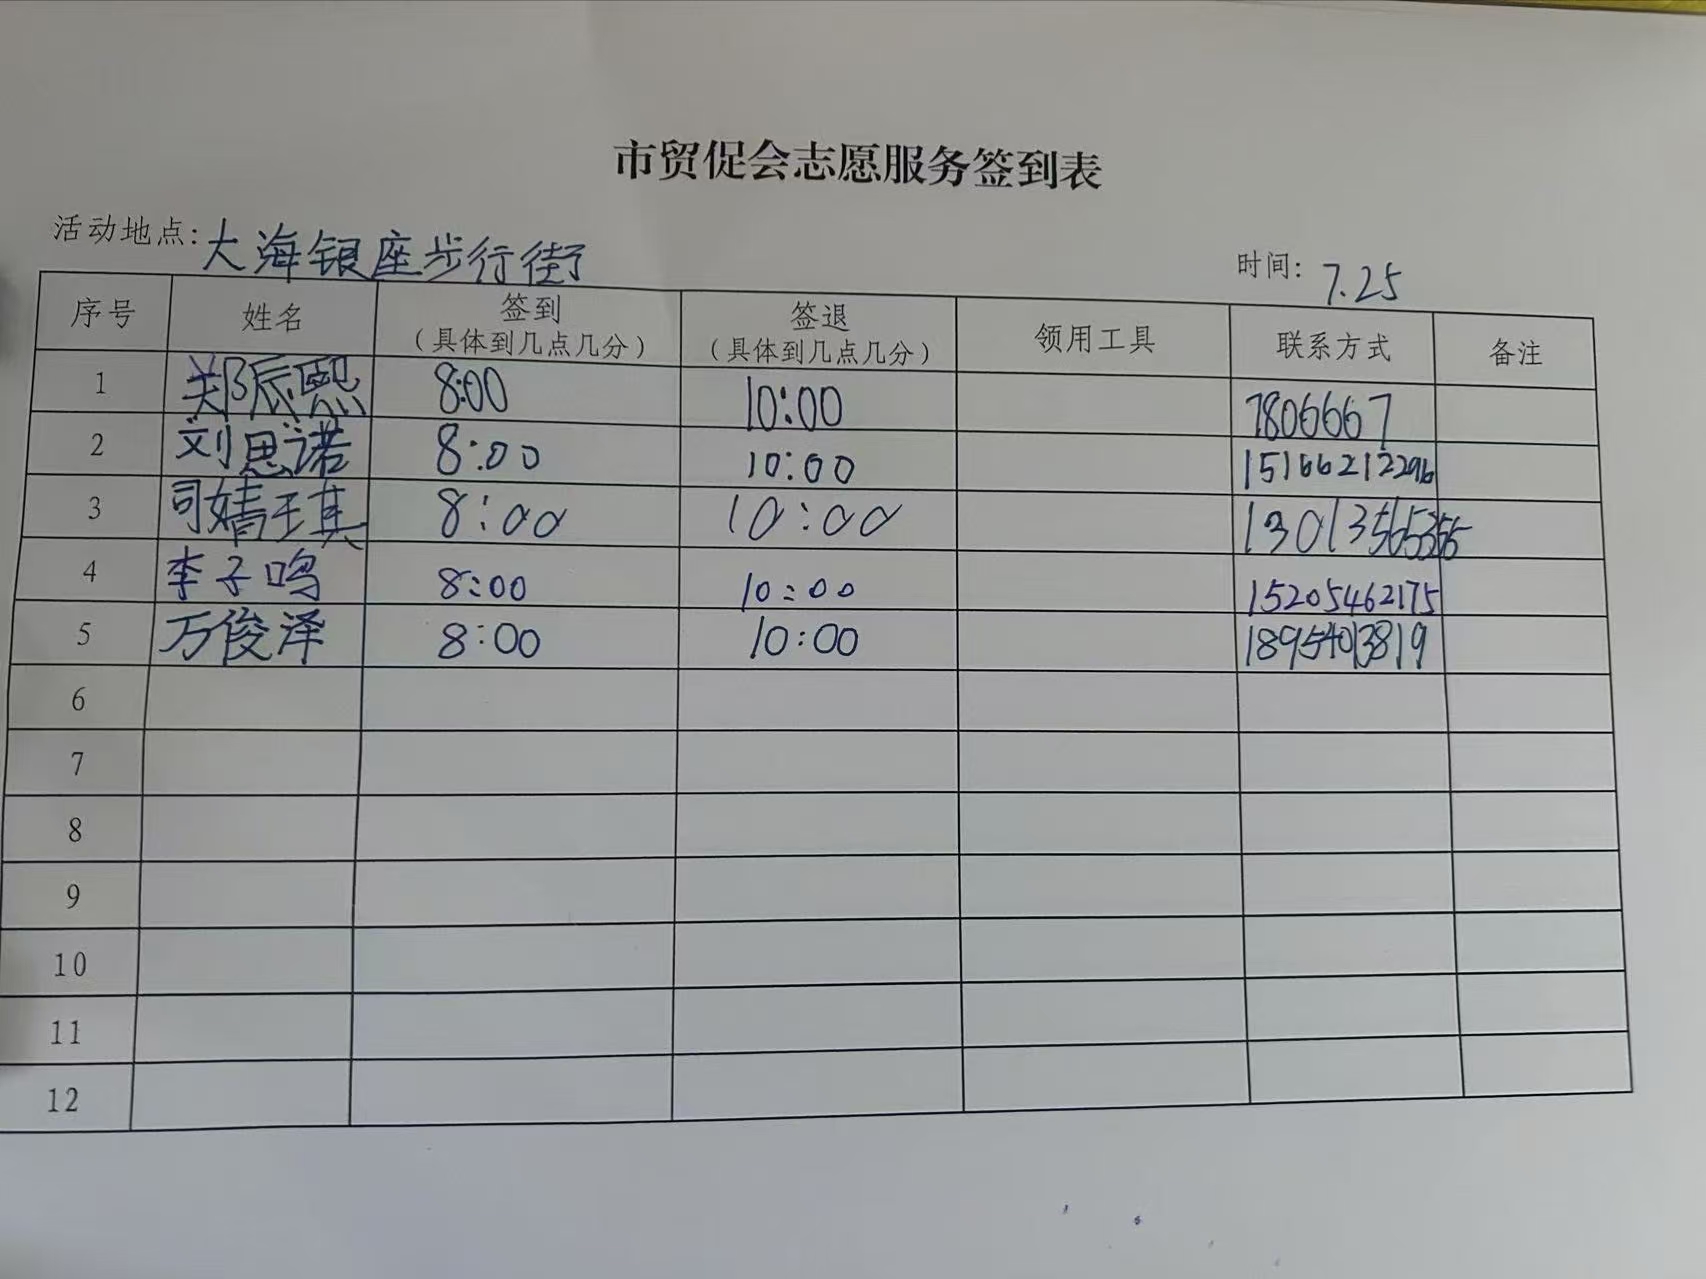 市贸促会志愿服务签到表
活动地点: 大海银座步行街 时间: 7.25
序号 姓名 签到 (具体到几点几分) 签退 (具体到几点几分) 领用工具 联系方式 备注
1 郑辰熙 8:00 10:00 7806667
2 刘思诺 8:00 10:00 15166212296
3 司婧琪 8:00 10:00
4 李子鸣 8:00 10:00 15205462175
5 万俊泽 8:00 10:00 18954013819
6
7
8
9
10
11
12